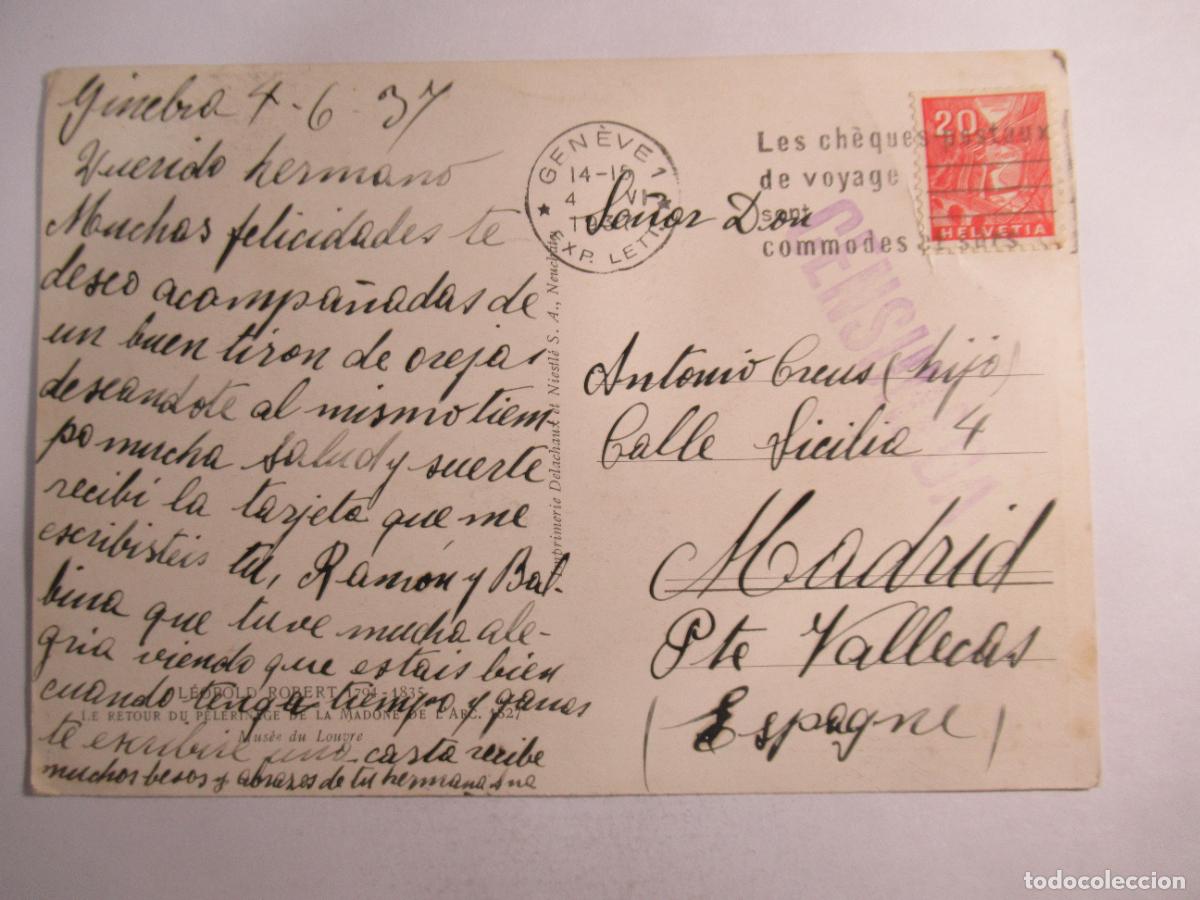 Ginebra 4-6-37
Querido hermano
Muchas felicidades te
deseo acompañadas de
un buen tiron de orejas
deseandote al mismo tiem-
po mucha salud y suerte
recibí la tarjeta que me
escribisteis tu, Ramón y Bal-
bina que tuve mucha ale-
gria viendo que estais bien
cuando tenga tiempo y ganas
te escribire una carta recibe
muchos besos y abrazos de tu hermana
LÉOPOLD ROBERT 1794-1835
LE RETOUR DU PÈLERINAGE DE LA MADONE DE L'ARC. 1827
Musée du Louvre
Imprimerie Delachaux et Niestlé S. A., Neuchâtel
GENÈVE 1
14-15
4 VI
EXP. LETTR
Les chèques postaux
de voyage
sont
commodes et sûrs
20
HELVETIA
CENSURADA
Señor Don
Antonio Creus (hijo)
Calle Sicilia 4
Madrid
Pte Vallecas
(Espagne)
todocoleccion